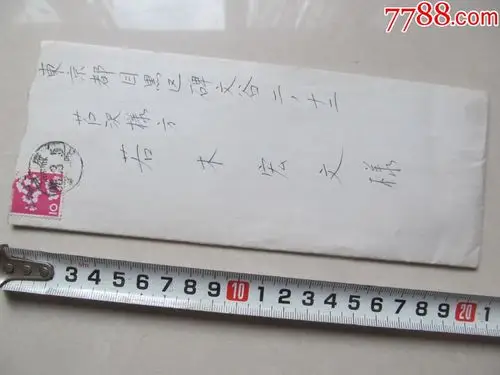 7788.com
東京都目黒区碑文谷二ノ十二
若沢様方
若木宏文様
10
3 4 5 6 7 8 9 10 1 2 3 4 5 6 7 8 9 20 1